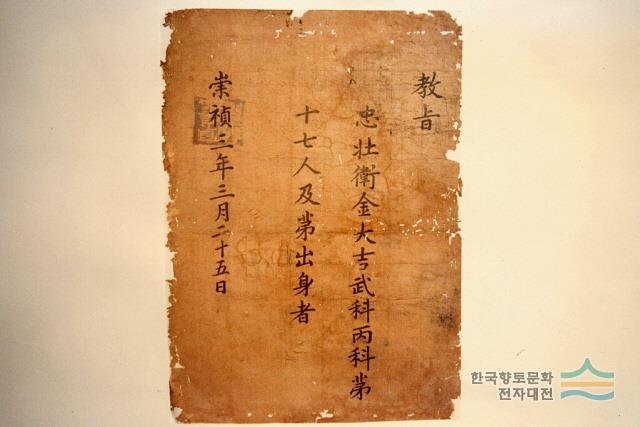 敎旨
忠壯衛金大吉武科丙科第
十七人及第出身者
崇禎三年三月二十五日
한국향토문화
전자대전